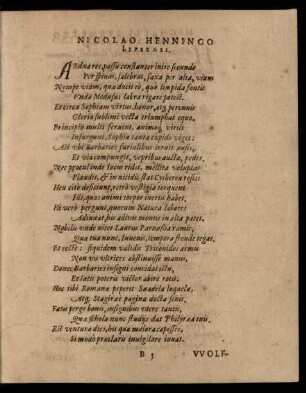 NICOLAO HENNINGO
LIPENSI.
ARdua res, passu constanter inire secundo
Per spinas, salebras, saxa per alta, viam
Nempe viam, quæ ducit eò, quò limpida fontis
Unda Medusæi labra rigare potest.
Et circa Sophiam virtus, honor, atq; perennis
Gloria sublimi vecta triumphat equo.
Principio multi fervent, animoq; virili
Insurgunt, Sophiæ tanta cupido viget:
Ast ubi Barbaries furialibus ieruit ausis,
Et via compungit, vepribus aucta, pedes,
Nec procul inde locus ridet, mellita voluptas
Plaudit, & in nitidis stat Cytherea rosis:
Heu citò desciunt, retrò vestigia torquent
Hi, quos animi torpor inertis habet,
At verò pergunt, quorum Natura labores
Adiuvat, his aditus montis in alta patet.
Nobilis unde nitet Laurus Parnassia ramis,
Qua tua nunc, Iuvenis, tempora fronde tegat,
Et rectè: siquidem validis Tritonidos armis
Non vis ultrices abstinuisse manus,
Donec Barbariei insigni comitatus
Et lætis poteris victor abire rotis.
Hoc tibi Romanæ peperit Suadela loquelæ,
Atq; Stagiritæ pagina docta senis,
Fatis perge bonis, insignibus utere tantis,
Quæ schola nunc studijs dat Philyræa tuis,
Est ventura dies, his quæ maiora capesses,
Si modò præclaris invigilare iuvat.
B 3 VVOLF-